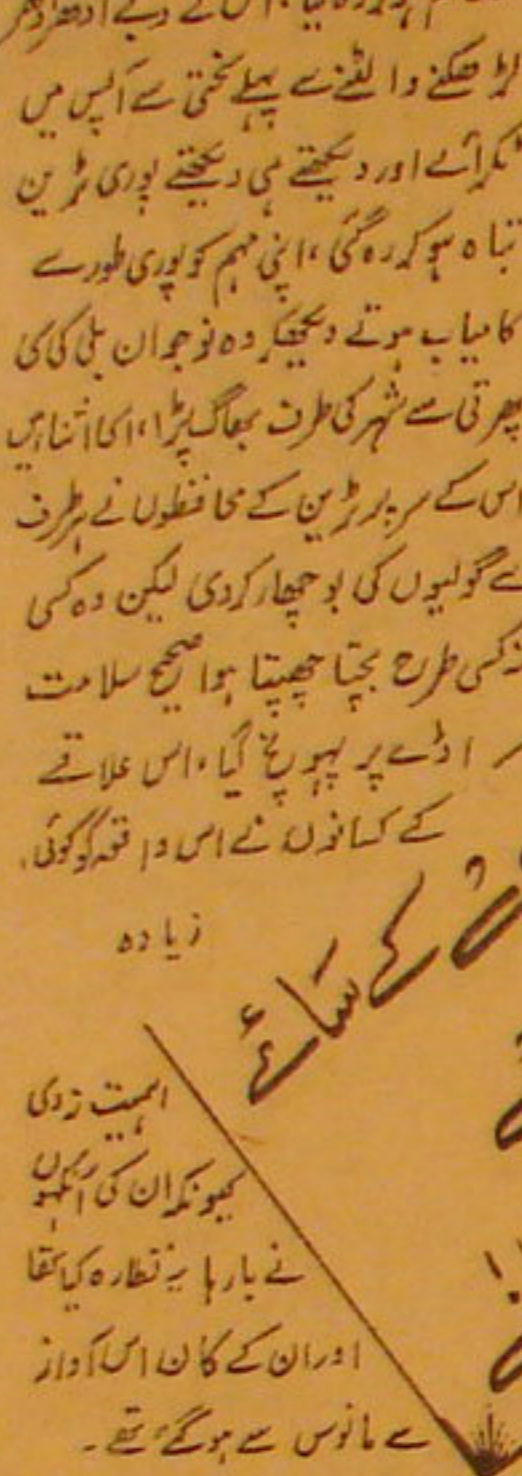 اس کے ڈبے ادھر ادھر
لڑھکنے والٹنے سے پہلے سختی سے آپس میں
ٹکرائے اور دیکھتے ہی دیکھتے پوری ٹرین
تباہ ہو کر رہ گئی، اپنی مہم کو پوری طور سے
کامیاب ہوتے دیکھکر وہ نوجوان بلی کی سی
پھرتی سے شہر کی طرف بھاگ پڑا، اسی اثنا میں
اس کے سر پر ٹرین کے محافظوں نے ہر طرف
سے گولیوں کی بوچھار کردی لیکن وہ کسی
نہ کسی طرح بچتا چھپتا ہوا صحیح سلامت
اڈے پر پہونچ گیا، اس علاقے
کے کسانوں نے اس واقعہ کو کوئی
زیادہ
کے سائے
اہمیت نہ دی
کیونکہ ان کی آنکھوں
نے بارہا یہ نظارہ کیا تھا
اور ان کے کان اس آواز
سے مانوس سے ہو گئے تھے۔